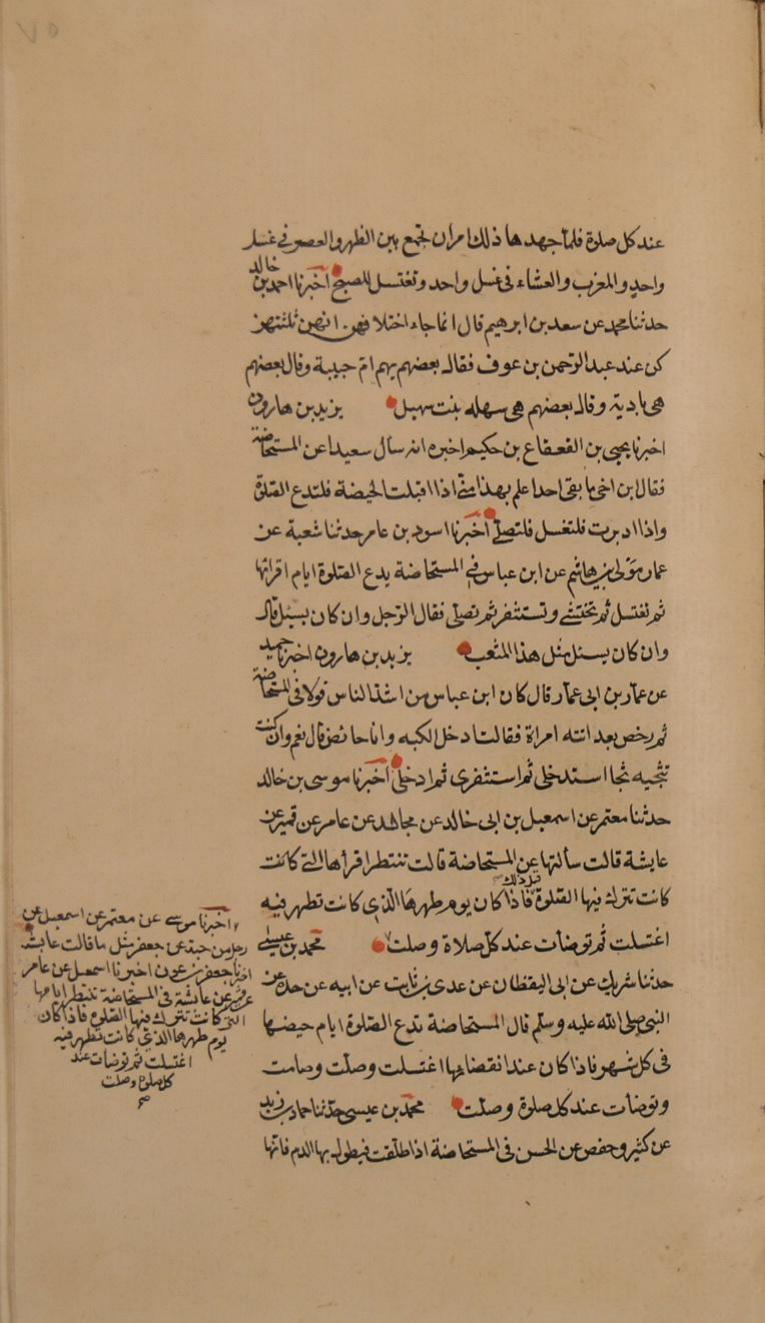 عند كل صلوة فلما جهدها ذلك امر ان تجمع بين الظهر والعصر في غسل
واحد والمغرب والعشاء في غسل واحد وتغتسل للصبح اخبرنا احمد بن خالد
حدثنا محمد عن سعد بن ابرهيم قال انما جاء اختلافهن انهن ثلثتهن
كن عند عبد الرحمن بن عوف فقال بعضهم هي ام حبيبة وقال بعضهم
هي بادية وقال بعضهم هي سهله بنت سهيل يزيد بن هارون
اخبرنا يحيى بن القعقاع بن حكيم اخبره انه سال سعيدا عن المستحاضة
فقال ابن اخي ما بقي احدا علم بهذا مني اذا اقبلت الحيضة فلتدع الصلوة
واذا ادبرت فلتغسل فلتصلي اخبرنا اسود بن عامر حدثنا شعبة عن
عمار مولى بني هاشم عن ابن عباس في المستحاضة يدع الصلوة ايام اقرائها
ثم تغتسل ثم تحتشي وتستثفر ثم تصلي فقال الرجل وان كان يسيل قال
وان كان يسيل مثل هذا المثعب يزيد بن هارون اخبرنا حميد
عن عمار بن ابي عمار قال كان ابن عباس من اشد الناس قولا في المستحاضة
ثم رخص بعد اتته امراة فقالت ادخل الكعبه وانا حائض قال نعم وان كنت
تثجيه ثجا استدخلي ثم استثفري ثم ادخلي اخبرنا موسى بن خالد
حدثنا معتمر عن اسمعيل بن ابي خالد عن مجالد عن عامر عن قمير عن
عايشة قالت سألتها عن المستحاضة قالت تنتظر اقرأها التي كانت
كانت تترك فيها الصلوة قبل ذلك فاذا كان يوم طهرها الذي كانت تطهر فيه
اغتسلت ثم توضأت عند كل صلاة وصلت محمد بن عيسى
حدثنا شريك عن ابي اليقظان عن عدي بن ثابت عن ابيه عن جده عن
النبي صلى الله عليه وسلم قال المستحاضة تدع الصلوة ايام حيضها
في كل شهر فاذا كان عند انقضائها اغتسلت وصلت وصامت
وتوضأت عند كل صلوة وصلت محمد بن عيسى حدثنا حماد بن زيد
عن كثير وحفص عن الحسن في المستحاضة اذا طلقت فيطول بها الدم فانها
اخبرنا موسى عن معتمر عن اسمعيل عن
رجل من حيه عن جعفر مثل ما قالت عايشة
اخبرنا جعفر بن عون اخبرنا اسمعيل عن عامر
عن قمير عن عائشة في المستحاضة تنتظر ايامها
التي كانت تترك فيها الصلوة فاذا كان
يوم طهرها الذي كانت تطهر فيه
اغتسلت ثم توضأت عند
كل صلوة وصلت
صح